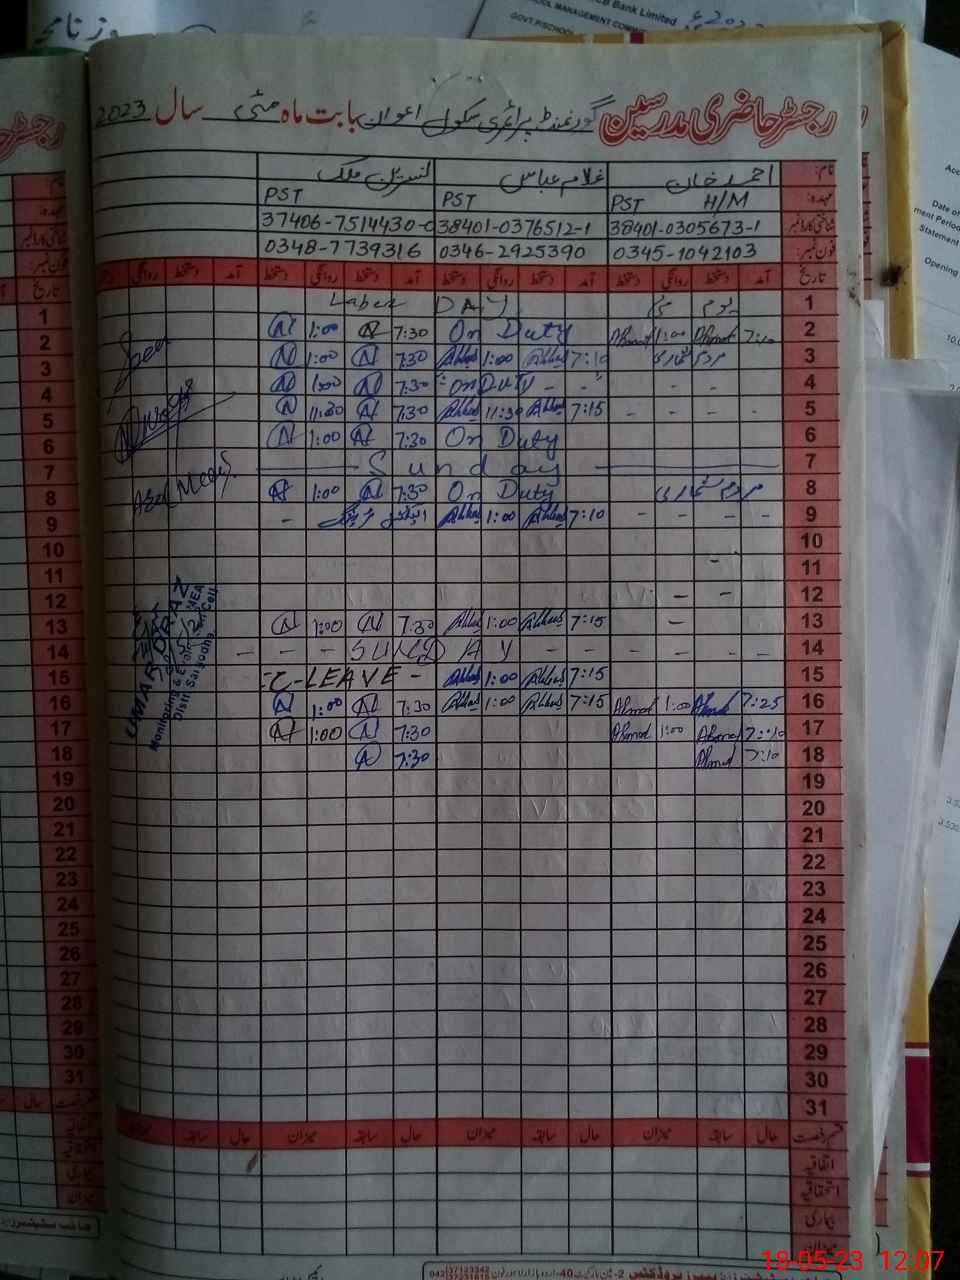 MCB Bank Limited
SCHOOL MANAGEMENT COMM
GOVT P/SCHOOL
رجسٹر حاضری مدرسین گورنمنٹ پرائمری سکول اعوان بابت ماہ مئی سال 2023
نام: احمد خان غلام عباس نسرین ملک
عہدہ: PST H/M PST PST
شناختی کارڈ نمبر 38401-0305673-1 38401-0376512-1 37406-7514430-0
فون نمبر: 0345-1042103 0346-2925390 0348-7739316
تاریخ آمد دستخط روانگی دستخط آمد دستخط روانگی دستخط آمد دستخط روانگی دستخط
1 یوم م Laber DAY 1
2 7:10 Ahmad 1:00 Ahmad On Duty 7:30 N 1:00 N 2
3 مردم شماری 7:10 Abbas 1:00 Abbas 7:30 N 1:00 N 3
4 - - - - On Duty 7:30 N 1:00 N 4
5 - - - - 7:15 Abbas 11:30 Abbas 7:30 N 11:30 N 5
6 On Duty 7:30 N 1:00 N 6
7 Sunday 7
8 مردم شماری On Duty 7:30 N 1:00 N 8
9 - - - - 7:10 Abbas 1:00 Abbas 9
10 10
11 - 11
12 - - 12
13 - 7:15 Abbas 1:00 Abbas 7:30 N 1:00 N 13
14 SUNDAY - - - 14
15 7:15 Abbas 1:00 Abbas C-LEAVE - 15
16 7:25 Ahmad 1:00 Ahmad 7:15 Abbas 1:00 Abbas 7:30 N 1:00 N 16
17 Ahmad 1:00 Ahmad 7:30 N 1:00 N 17
18 7:10 Ahmad 7:30 N 18
19 19
20 20
21 21
22 22
23 23
24 24
25 25
26 26
27 27
28 28
29 29
30 30
31 31
UMAR DRAZ
Monitoring &
Distt Sargodha
قسم رخصت حال سابقہ میزان حال سابقہ میزان حال سابقہ میزان
اتفاقیہ
استحقاقیہ
بیماری
میزان
18-05-23 12:07